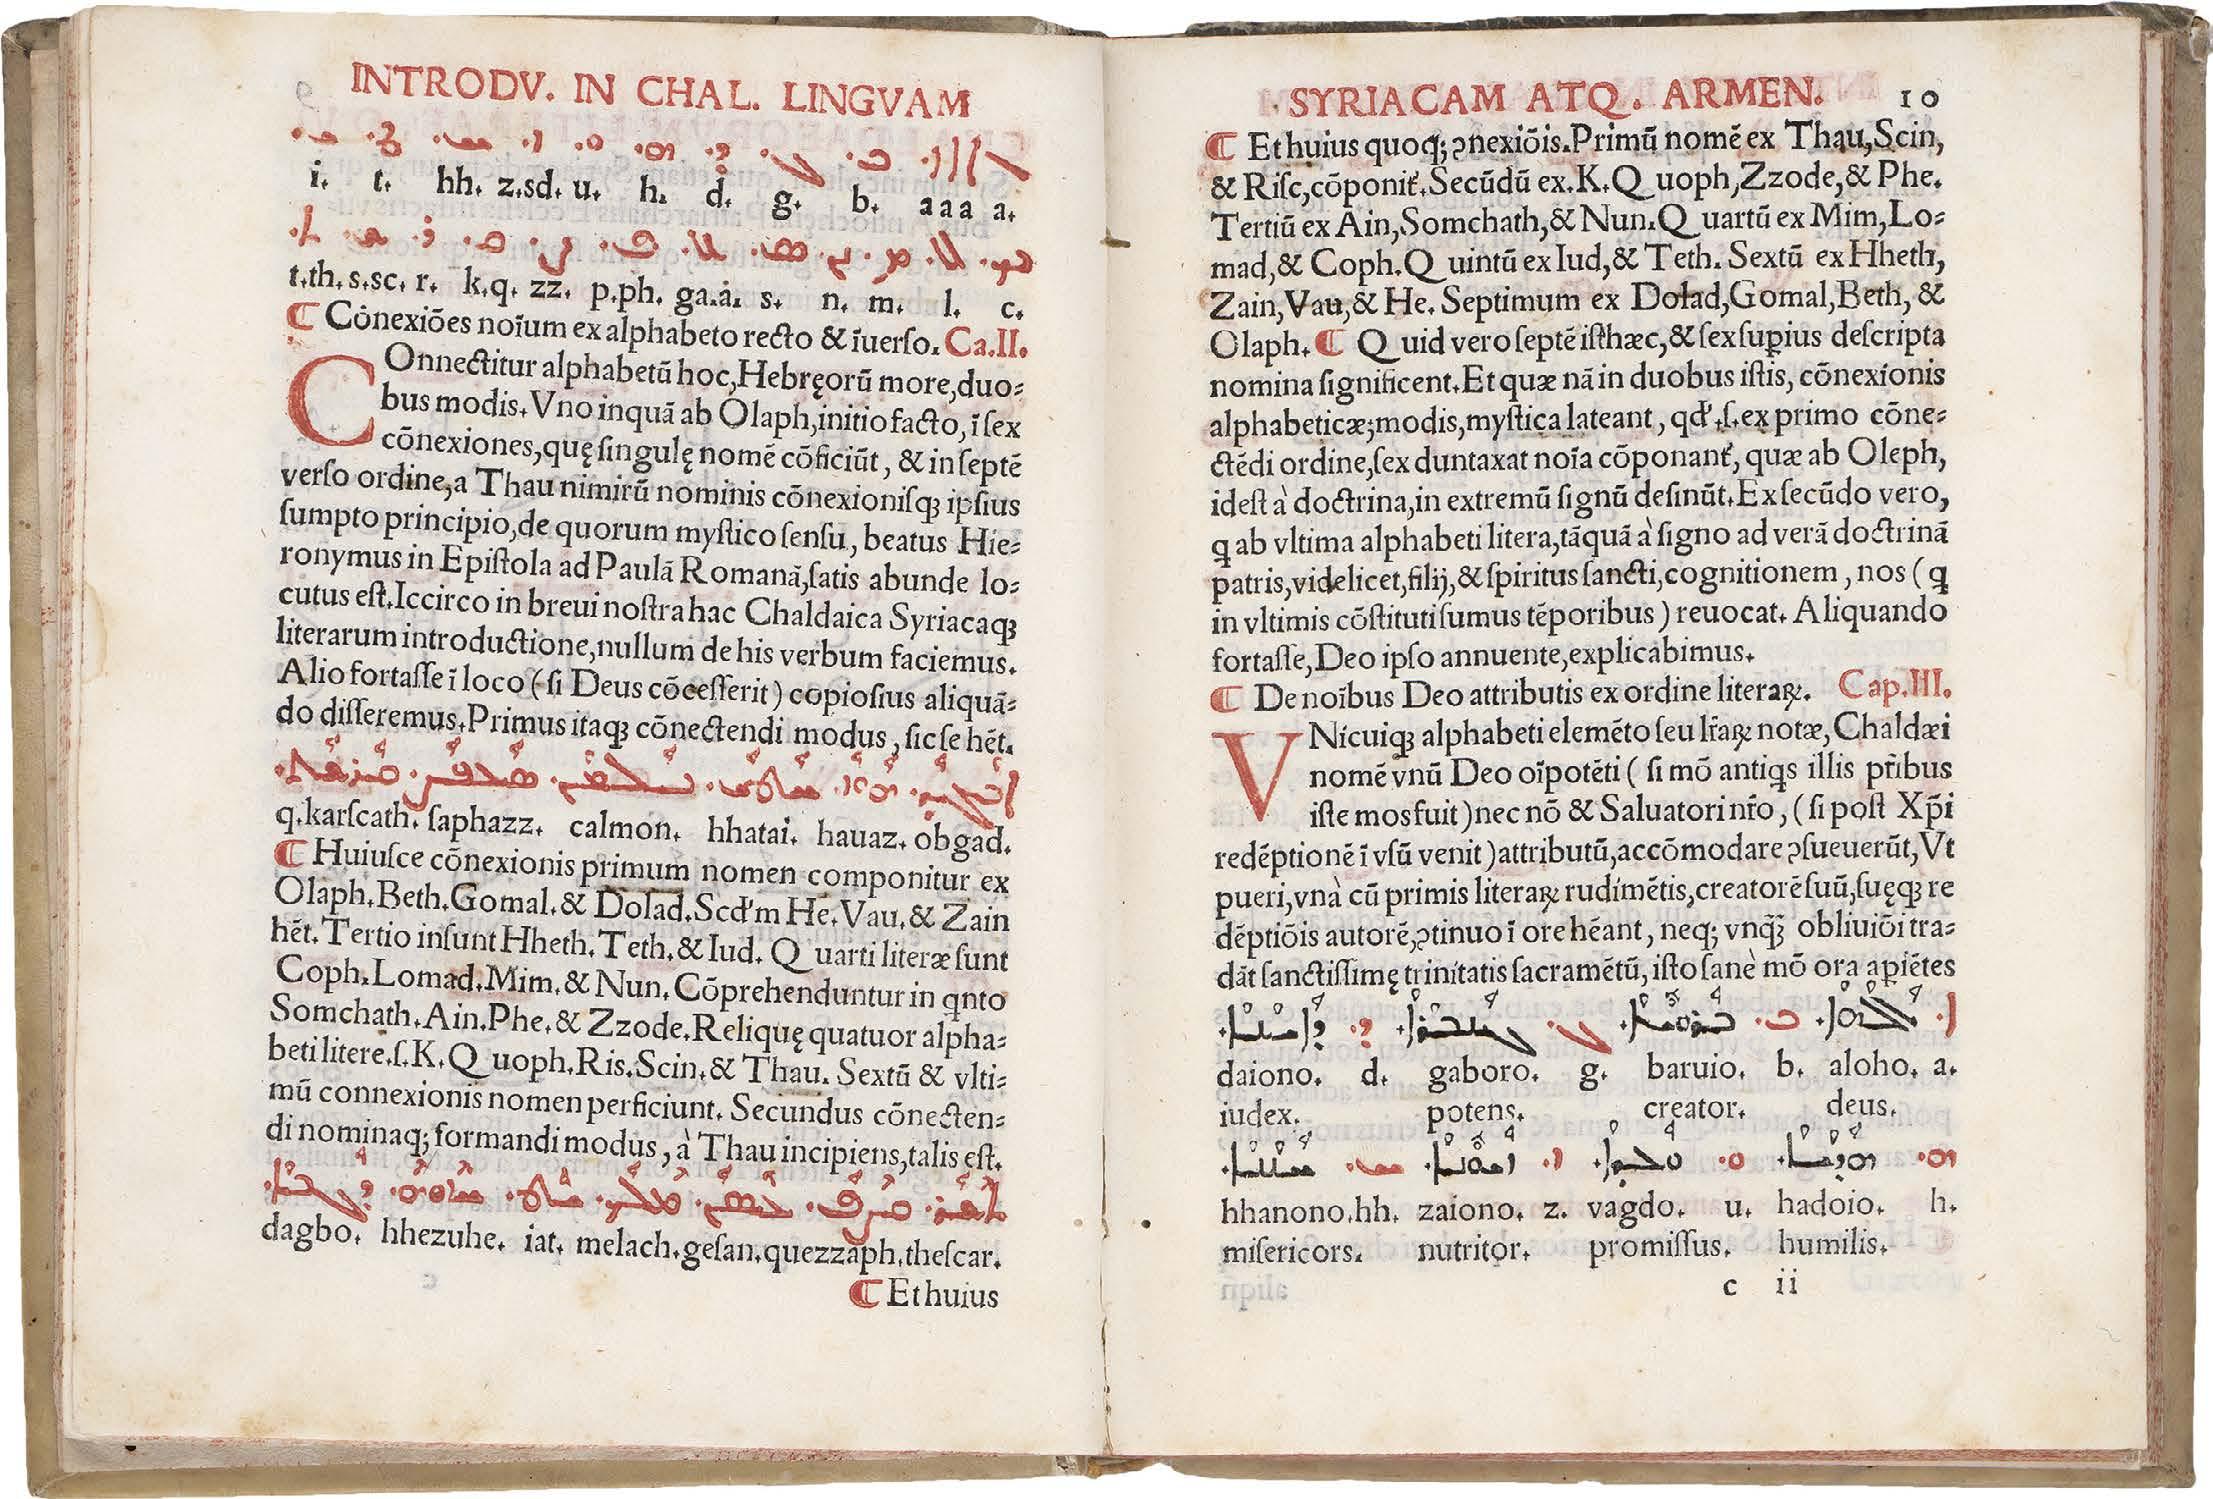 INTRODV. IN CHAL. LINGVAM
ܐ. ܒ. ܓ. ܕ. ܗ. ܘ. ܙ. ܚ. ܛ. ܝ.
i. t. hh. z.sd. u. h. d. g. b. aaa a.
ܟ. ܠ. ܡ. ܢ. ܣ. ܥ. ܦ. ܨ. ܩ. ܪ. ܫ. ܬ.
t.th. s.sc. r. k.q. zz. p.ph. ga.a. s. n. m. l. c.
¶ Cōnexiōes noīum ex alphabeto recto & īuerſo. Ca.II.
COnnectitur alphabetū hoc, Hebręorū more, duo⸗
bus modis. Vno inquā ab Olaph, initio facto, ī ſex
cōnexiones, quę ſingulę nomē cōficiūt, & in ſeptē
verſo ordine, a Thau nimirū nominis cōnexioniſqꝫ ipſius
ſumpto principio, de quorum myſtico ſenſu, beatus Hie⸗
ronymus in Epiſtola ad Paulā Romanā, ſatis abunde lo⸗
cutus eſt. Iccirco in breui noſtra hac Chaldaica Syriacaqꝫ
literarum introductione, nullum de his verbum faciemus.
Alio fortaſſe ī loco (ſi Deus cōceſſerit) copioſius aliquā⸗
do diſſeremus. Primus itaqꝫ cōnectendi modus, ſic ſe hēt.
ܐܒܓܕ. ܗܘܙ. ܚܛܝ. ܟܠܡܢ. ܣܥܦܨ. ܩܪܫܬ.
q.karſcath. ſaphazz. calmon. hhatai. hauaz. obgad.
¶ Huiuſce cōnexionis primum nomen componitur ex
Olaph. Beth. Gomal. & Dolad. Scd'm He. Vau. & Zain
hēt. Tertio inſunt Hheth. Teth. & Iud. Quarti literæ ſunt
Coph. Lomad. Mim. & Nun. Cōprehenduntur in qnto
Somchath. Ain. Phe. & Zzode. Reliquę quatuor alpha⸗
beti litere. ſ. K. Quoph. Ris. Scin. & Thau. Sextū & vlti⸗
mū connexionis nomen perficiunt. Secundus cōnecten⸗
di nominaq; formandi modus, à Thau incipiens, talis eſt.
ܬܫܪ. ܩܨܦ. ܥܣܢ. ܡܠܟ. ܝܛ. ܚܙܘܗ. ܕܓܒܐ.
dagbo. hhezuhe. iat. melach. geſan. quezzaph. theſcar.
¶ Et huius
SYRIACAM ATQ. ARMEN. 10
¶ Et huius quoq; ↄnexiōis. Primū nomē ex Thau, Scin,
& Riſc, cōponiť. Secūdū ex. K. Quoph, Zzode, & Phe.
Tertiū ex Ain, Somchath, & Nun. Quartū ex Mim, Lo⸗
mad, & Coph. Quintū ex Iud, & Teth. Sextū ex Hheth,
Zain, Vau, & He. Septimum ex Dolad, Gomal, Beth, &
Olaph. ¶ Quid vero ſeptē iſthæc, & ſex ſupius deſcripta
nomina ſignificent. Et quæ nā in duobus iſtis, cōnexionis
alphabeticæ; modis, myſtica lateant, qd'. ſ. ex primo cōne⸗
ctēdi ordine, ſex duntaxat noīa cōponanť, quæ ab Oleph,
ideſt à doctrina, in extremū ſignū deſinūt. Ex ſecūdo vero,
q ab vltima alphabeti litera, tāquā à ſigno ad verā doctrinā
patris, videlicet, filij, & ſpiritus ſancti, cognitionem, nos (q
in vltimis cōſtituti ſumus tēporibus) reuocat. Aliquando
fortaſſe, Deo ipſo annuente, explicabimus.
¶ De noībus Deo attributis ex ordine literaꝝ. Cap.III.
VNicuiqꝫ alphabeti elemēto ſeu lr̄aꝝ notæ, Chaldæi
nomē vnū Deo oīpotēti (ſi mō antiqs illis pr̄ibus
iſte mos fuit) nec nō & Saluatori nr̄o, (ſi poſt Xp̄i
redēptionē ī vſū venit) attributū, accōmodare ↄſueuerūt, Vt
pueri, vnà cū primis literaꝝ rudimētis, creatorē ſuū, ſuęqꝫ re
dēptiōis autorē, ↄtinuo ī ore hēant, neq; vnqꝫ̄ obliuiōi tra⸗
dāt ſanctiſſimę trinitatis ſacramētū, iſto ſanè mō ora apiētes
ܐ. ܐܠܗܐ. ܒ. ܒܪܘܝܐ. ܓ. ܕ.
daiono. d. gaboro. g. baruio. b. aloho. a.
iudex. potens. creator. deus.
ܗ. ܘ. ܙ. ܚ.
hhanono. hh. zaiono. z. vagdo. u. hadoio. h.
miſericors. nutritor. promiſſus. humilis.
c ii